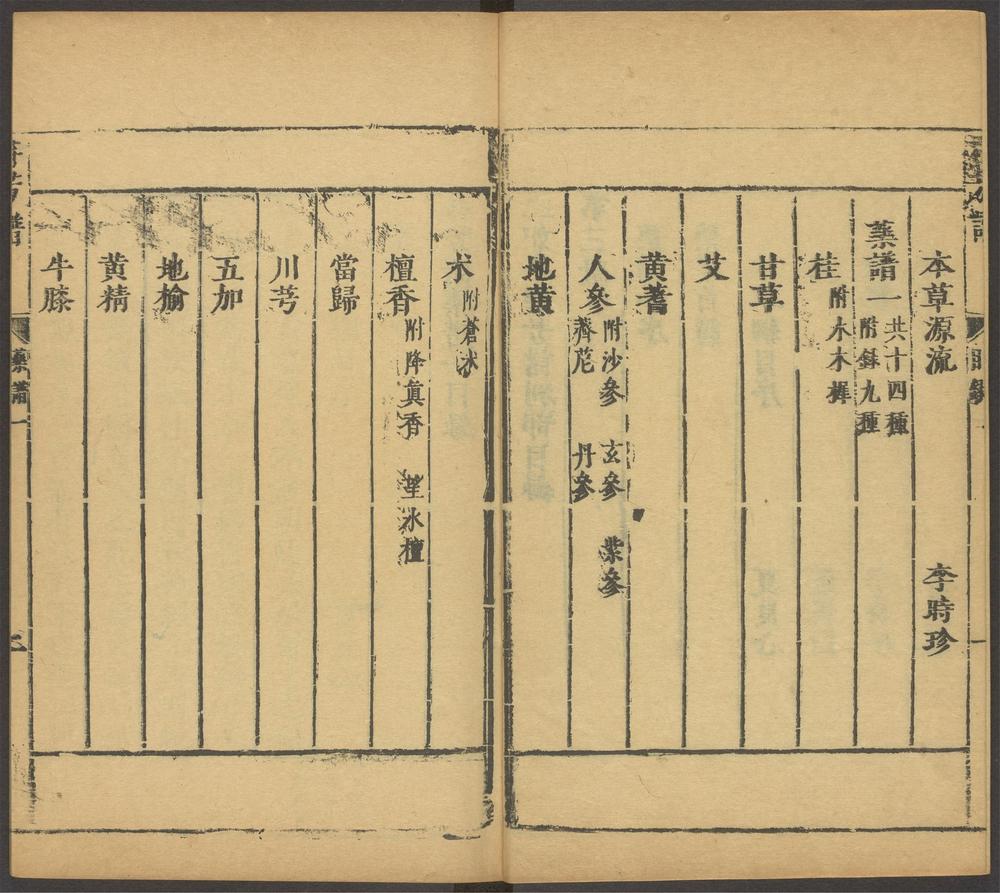 本草源流 李時珍
藥譜一 共十四種 附錄九種
桂 附木木樨
甘草
艾
黄耆
人參 附沙參 玄參 紫參 薺苨 丹參
地黄
朮 附蒼朮
檀香 附降真香 望水檀
當歸
川芎
五加
地榆
黄精
牛膝
藥譜一